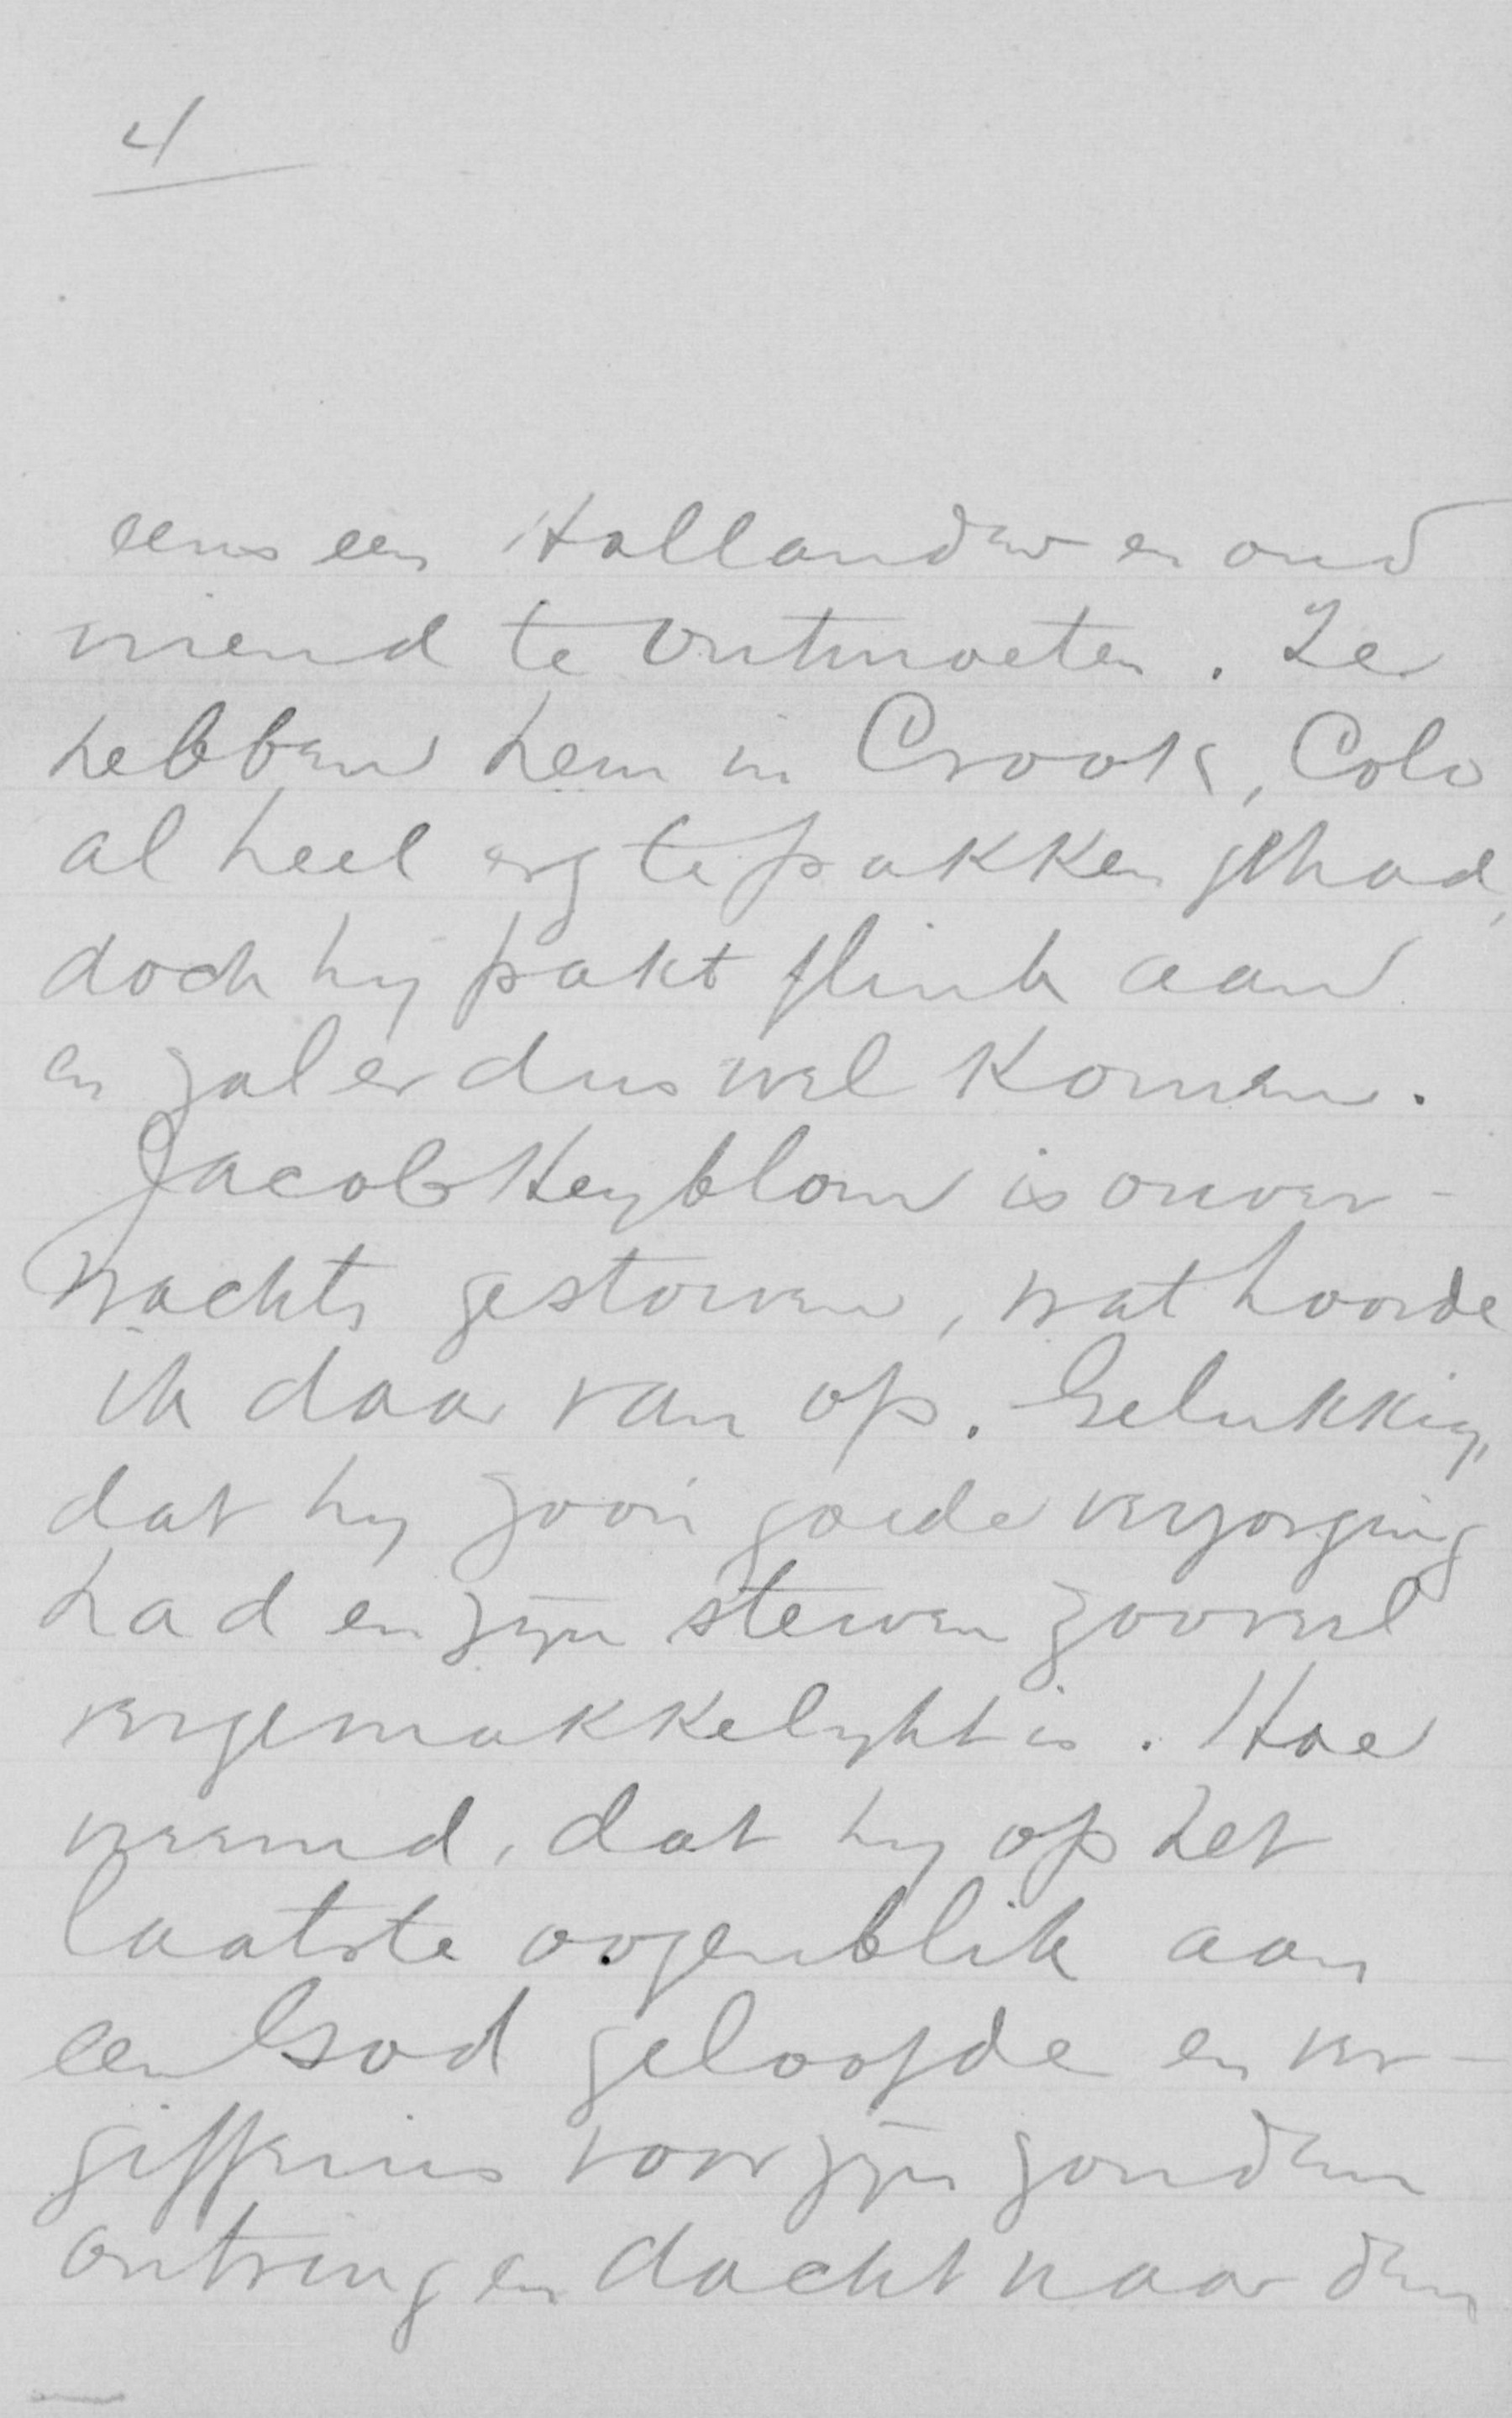 4
eens een Hollander en oud
vriend te ontmoeten. Ze
hebben hem in Crook, Colo
al heel erg te pakken gehad,
doch hij pakt flink aan
en zal er dus wel komen.
Jacob Heyblom is onver-
wachts gestorven, wat hoorde
ik daar van op. Gelukkig,
dat hij zoo'n goede verzorging
had en zijn sterven zooveel
vergemakkelykt is. Hoe
vreemd, dat hij op het
laatste oogenblik aan
een God geloofde en ver-
giffenis voor zijn zonden
ontving en dacht naar den